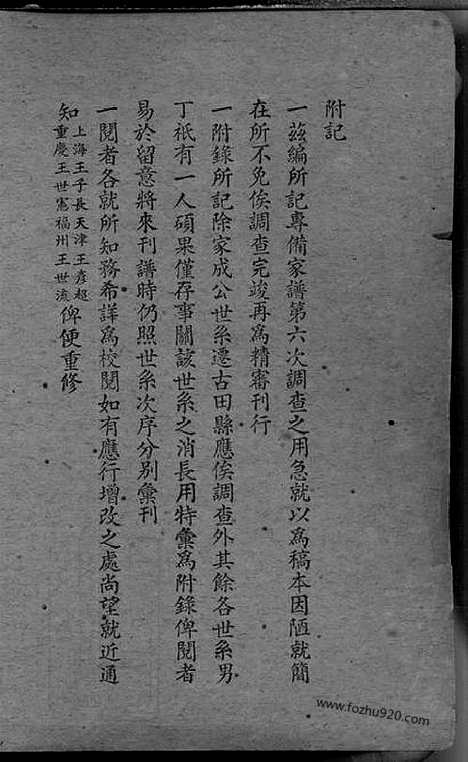 附記
一茲編所記專備家譜第六次調查之用急就以爲稿本因陋就簡
在所不免俟調查完竣再爲精審刊行
一附錄所記除家成公世系遷古田縣應俟調查外其餘各世系男
丁祇有一人碩果僅存事關該世系之消長用特彙爲附錄俾閱者
易於留意將來刊譜時仍照世系次序分別彙刊
一閱者各就所知務希詳爲校閱如有應行增改之處尚望就近通
知上海王子長天津王彥超重慶王世憲福州王世流俾便重修
www.fozhu920.com